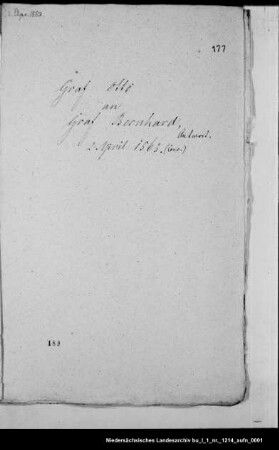 177
Graf Otto
an
Graf Bernhard,
Antwort.
2 April 1565. (Conc.)
189
Niedersächsisches Landesarchiv bu_l_1_nr._1214_aufn_0001